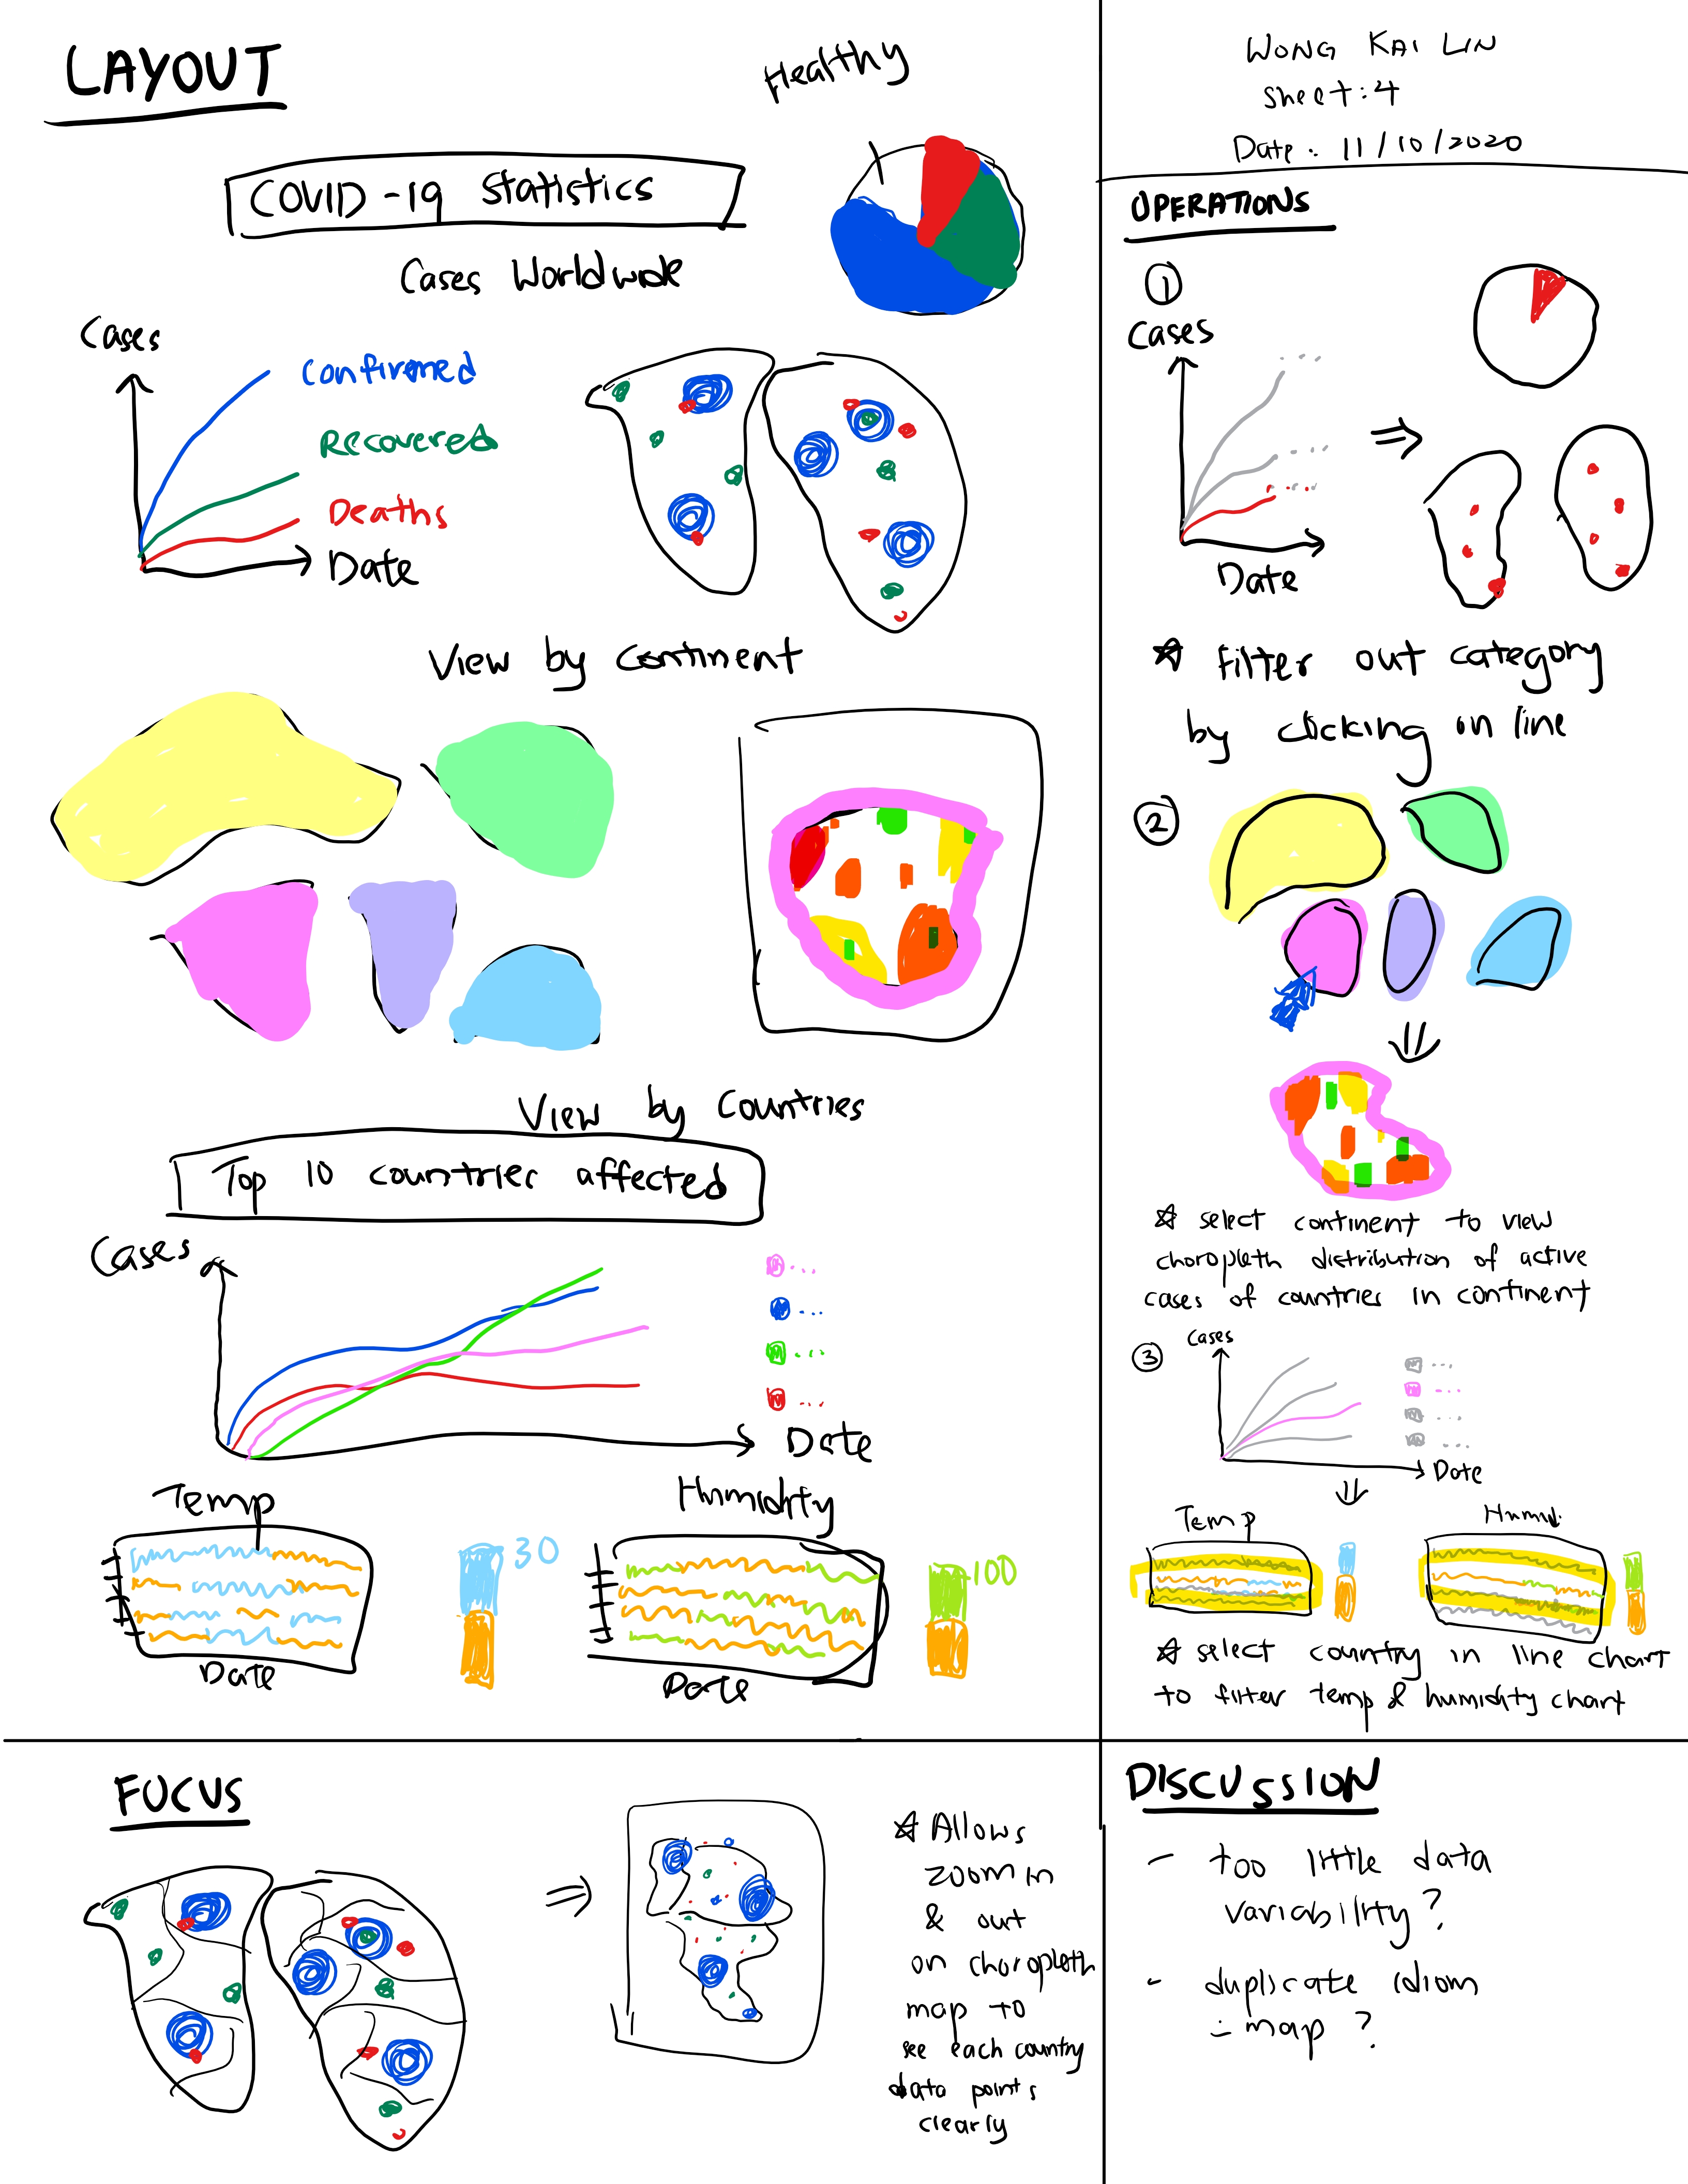 LAYOUT
Healthy
COVID-19 Statistics
Cases Worldwide
Cases
Confirmed
Recovered
Deaths
Date
View by Continent
View by Countries
Top 10 countries affected
Cases
...
...
...
...
Date
Temp
30
Date
Humidity
100
Date
WONG KAI LIN
Sheet: 4
Date: 11/10/2020
OPERATIONS
1
Cases
Date
☆ Filter out category
by clicking on line
2
☆ select continent to view
choropleth distribution of active
cases of countries in continent
3
Cases
...
...
...
...
Date
Temp
Humid.
☆ select country in line chart
to filter temp & humidity chart
FOCUS
☆ Allows
zoom in
& out
on choropleth
map to
see each country
data points
clearly
DISCUSSION
- too little data
variability?
- duplicate idiom
= map?